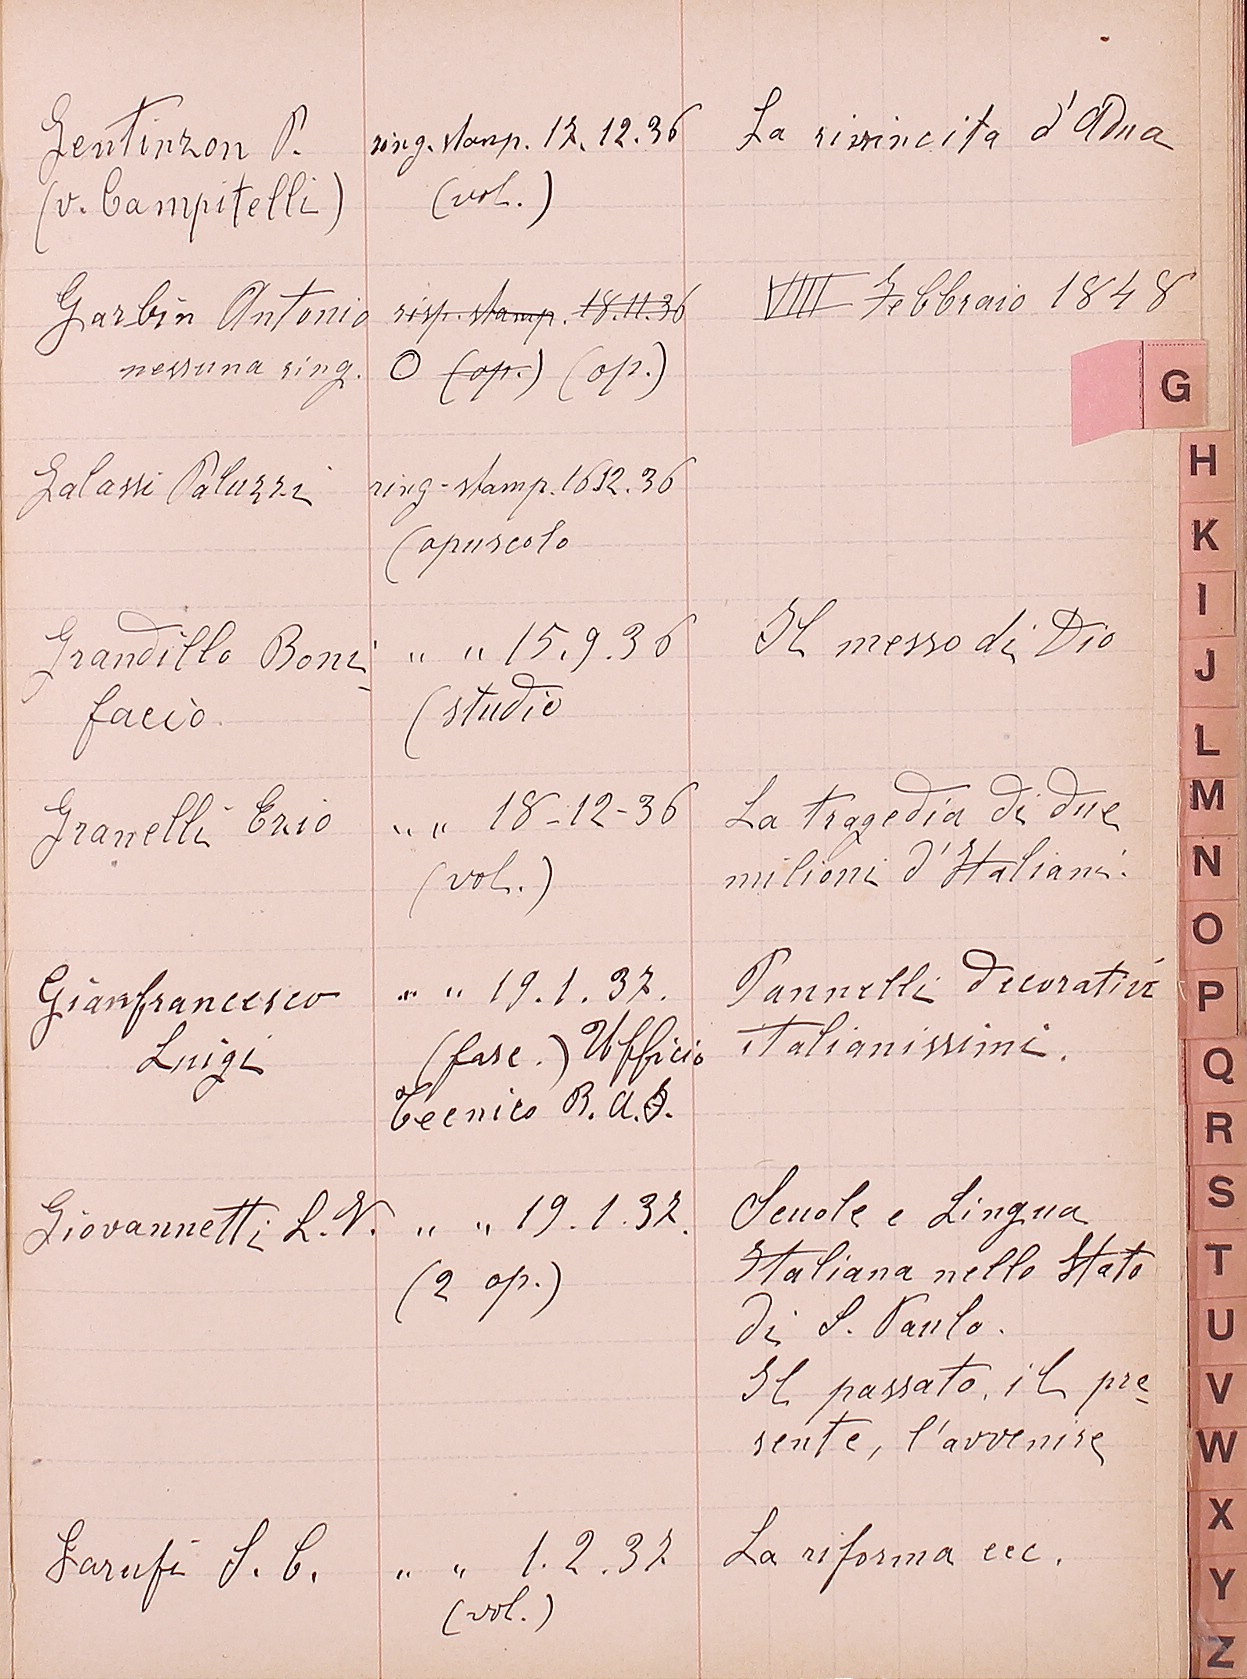 Gentinzon P. ring. stamp. 17.12.36 La rivincita d'Adua
(v. Campitelli) (vol.)
Garbin Antonio risp. stamp. 18.11.36 VIII Febbraio 1848
nessuna ring. O (op.) (op.)
G
Galassi Paluzzi ring-stamp. 16 12.36
(opuscolo
Grandillo Boni- " " 15.9.36 Il messo di Dio
facio. (studio
Granelli Erio " " 18-12-36 La tragedia di due
(vol.) milioni d'Italiani.
Gianfrancesco " " 19.1.37. Pannelli decorativi
Luigi (fasc.) Ufficio italianissimi.
Tecnico R. A.
Giovannetti L. V. " " 19.1.37. Scuole e Lingua
(2 op.) Italiana nello Stato
di S. Paulo.
Il passato, il pre-
sente, l'avvenire
Garufi S. C. " " 1.2.37 La riforma ecc.
(vol.)
H
K
I
J
L
M
N
O
P
Q
R
S
T
U
V
W
X
Y
Z